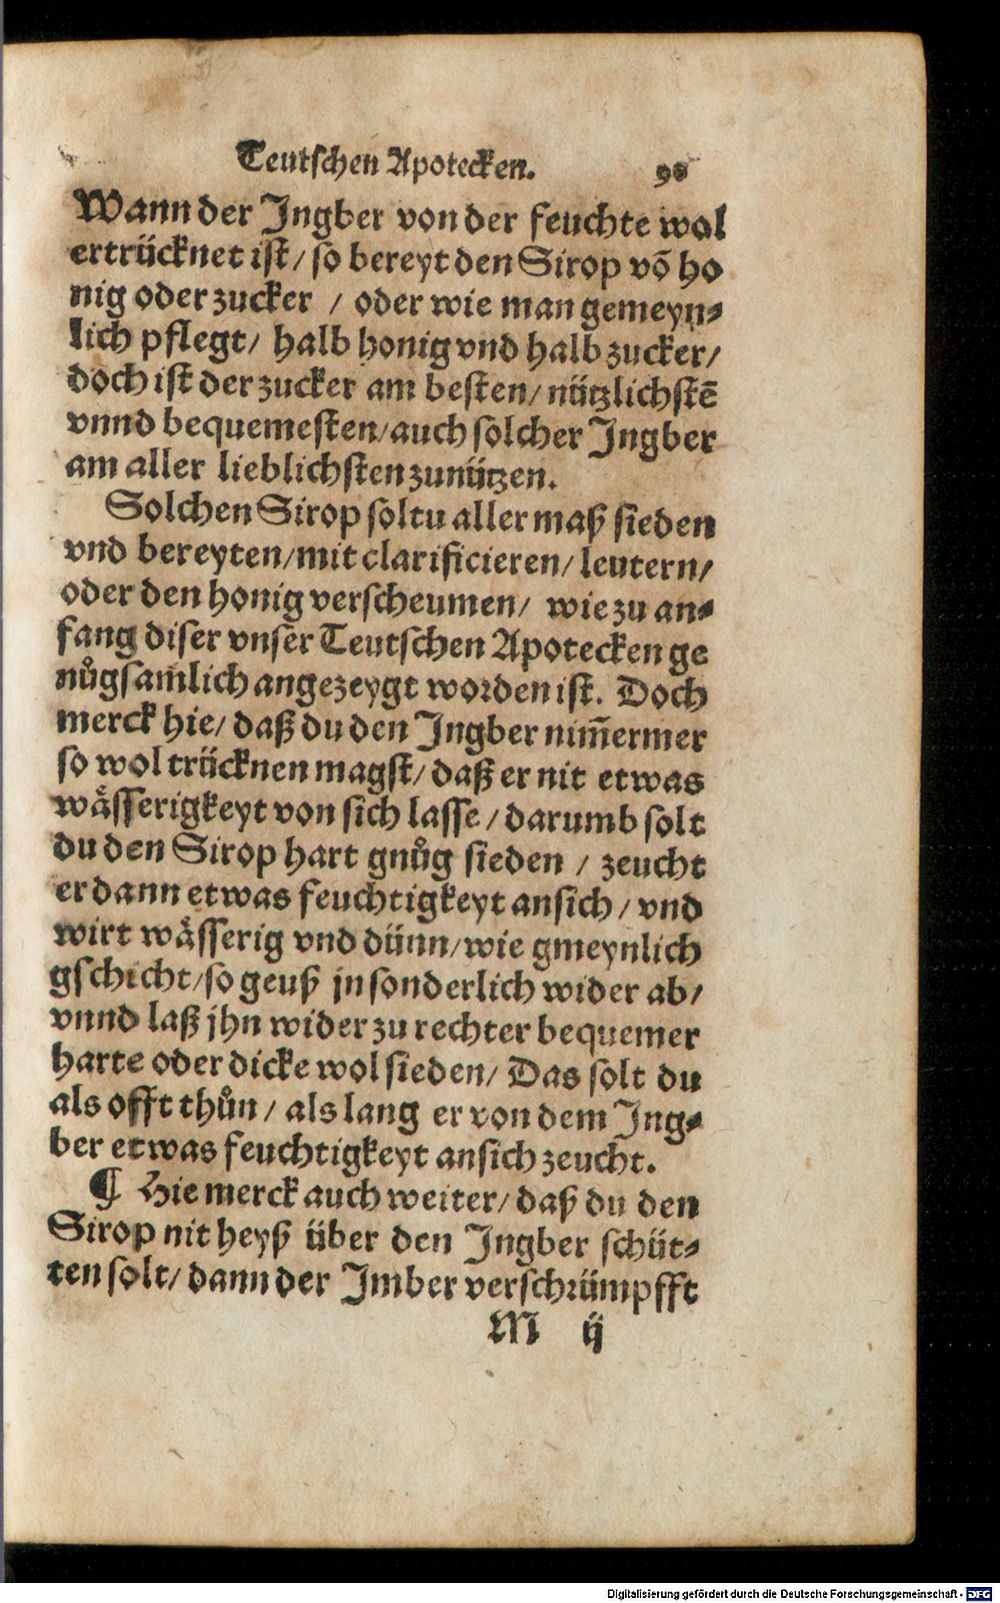 Teutschen Apotecken. 90
Wann der Jngber von der feuchte wol
ertrücknet ist / so bereyt den Sirop võ ho
nig oder zucker / oder wie man gemeyn⸗
lich pflegt / halb honig vnd halb zucker /
doch ist der zucker am besten / nützlichstẽ
vnnd bequemesten / auch solcher Jngber
am aller lieblichsten zunützen.
Solchen Sirop soltu aller maß sieden
vnd bereyten / mit clarificieren / leutern /
oder den honig verscheumen / wie zu an⸗
fang diser vnser Teutschen Apotecken ge
nůgsam̃lich angezeygt worden ist. Doch
merck hie / daß du den Jngber nim̃ermer
so wol trücknen magst / daß er nit etwas
wåsserigkeyt von sich lasse / darumb solt
du den Sirop hart gnůg sieden / zeucht
er dann etwas feuchtigkeyt an sich / vnd
wirt wåsserig vnd dünn / wie gmeynlich
gschicht / so geuß jn sonderlich wider ab /
vnnd laß jhn wider zu rechter bequemer
harte oder dicke wol sieden / Das solt du
als offt thůn / als lang er von dem Jng⸗
ber etwas feuchtigkeyt an sich zeucht.
¶ Hie merck auch weiter / daß du den
Sirop nit heyß über den Jngber schüt⸗
ten solt / dann der Jmber verschrümpfft
M ij
Digitalisierung gefördert durch die Deutsche Forschungsgemeinschaft - DFG